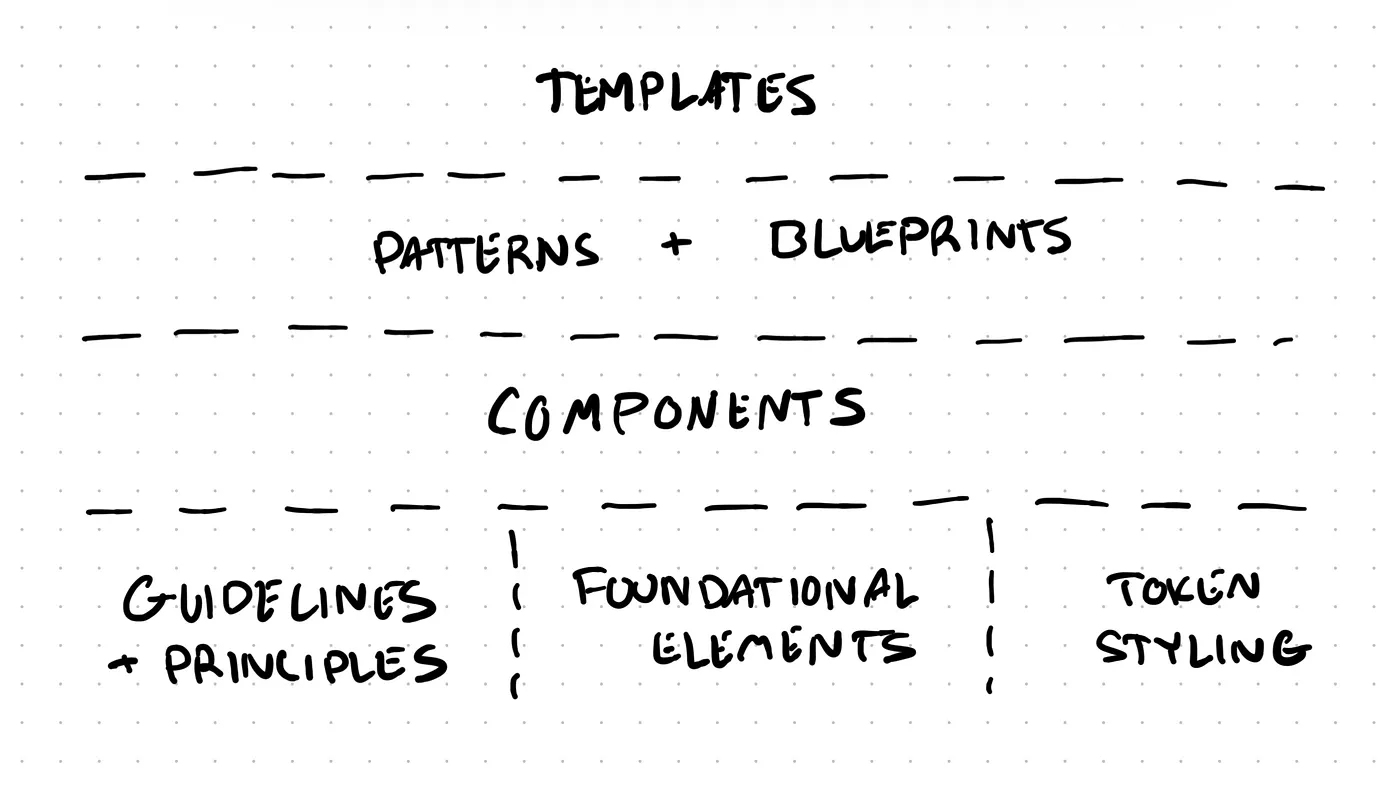 TEMPLATES
PATTERNS + BLUEPRINTS
COMPONENTS
GUIDELINES
+ PRINCIPLES
FOUNDATIONAL
ELEMENTS
TOKEN
STYLING